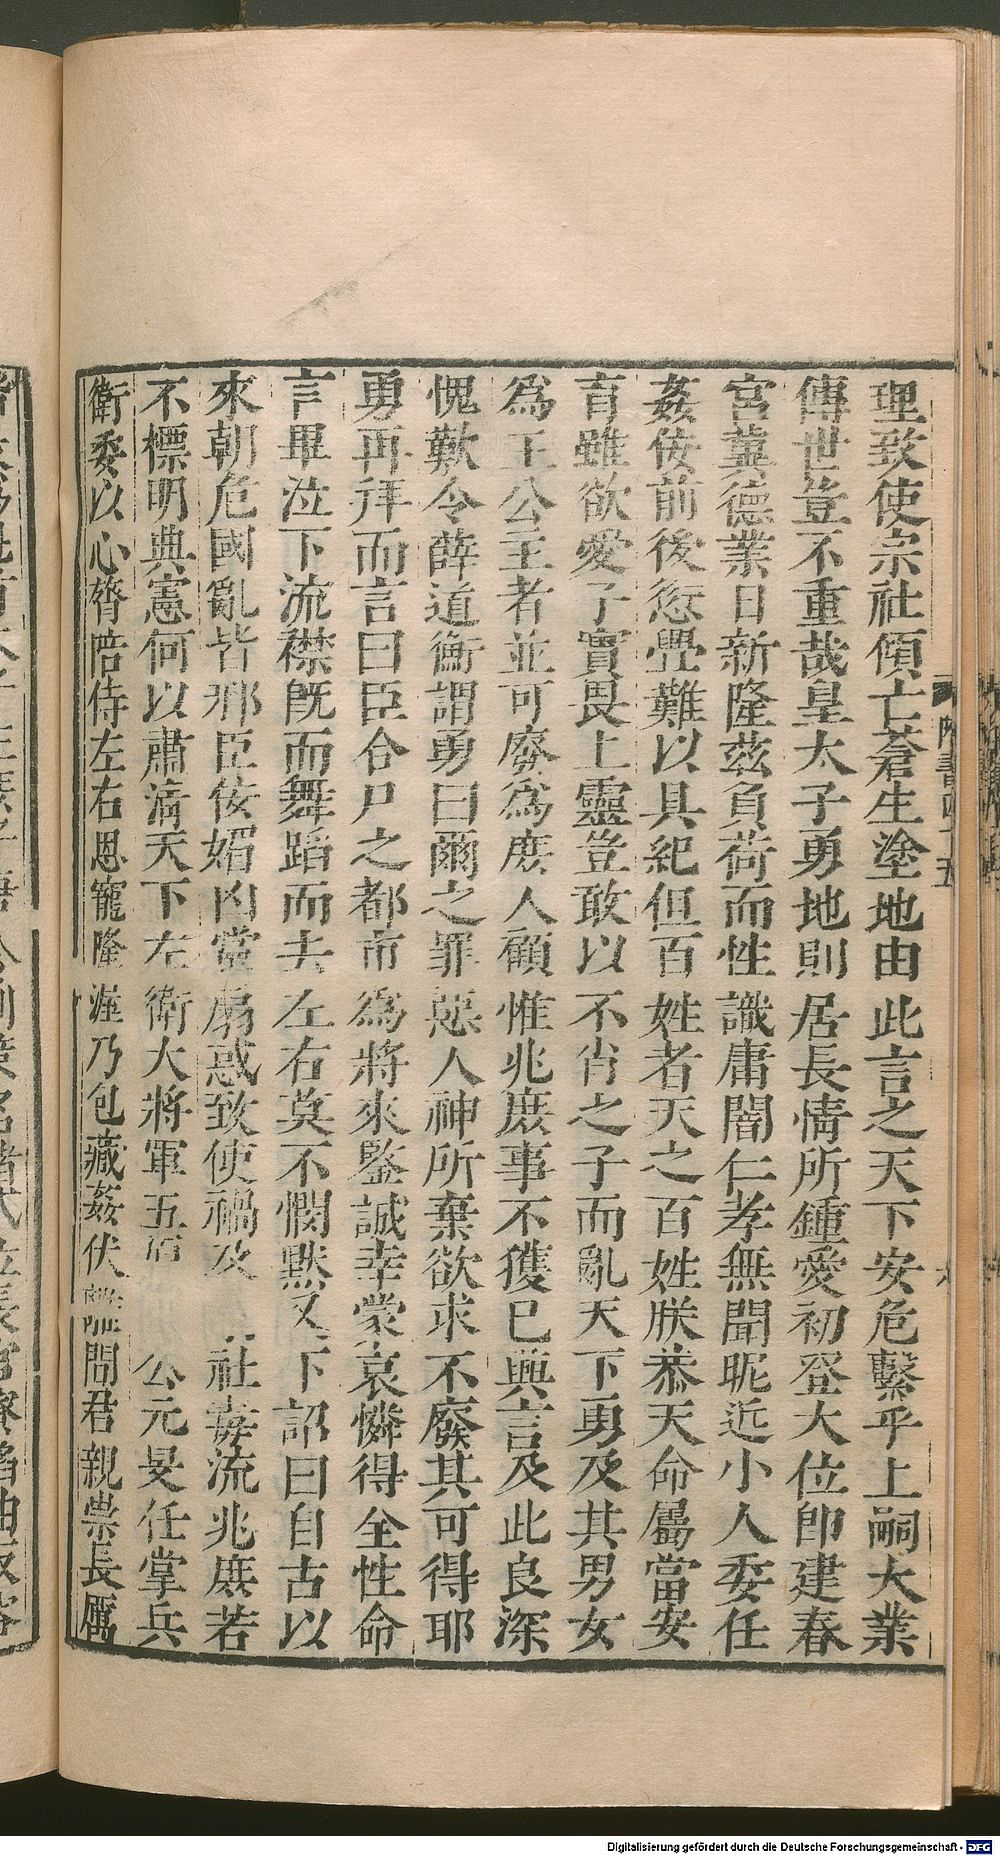 理致使宗社傾亡蒼生塗地由此言之天下安危繫乎上嗣大業
傳世豈不重哉皇太子勇地則居長情所鍾愛初登大位即建春
宮冀德業日新隆茲負荷而性識庸闇仁孝無聞昵近小人委任
姦佞前後愆釁難以具紀但百姓者天之百姓朕恭天命屬當安
育雖欲愛子實畏上靈豈敢以不肖之子而亂天下勇及其男女
為王公主者並可廢為庶人顧惟兆庶事不獲已興言及此良深
愧歎令薛道衡謂勇曰爾之罪惡人神所棄欲求不廢其可得耶
勇再拜而言曰臣合尸之都市為將來鑒誡幸蒙哀憐得全性命
言畢泣下流襟既而舞蹈而去左右莫不憫默又下詔曰自古以
來朝危國亂皆邪臣佞媚凶黨扇惑致使禍及社毒流兆庶若
不標明典憲何以肅清天下左衛大將軍五原公元旻任掌兵
衛委以心膂陪侍左右恩寵隆渥乃包藏姦伏離間君親崇長厲
隋書四十五
Digitalisierung gefördert durch die Deutsche Forschungsgemeinschaft - DFG